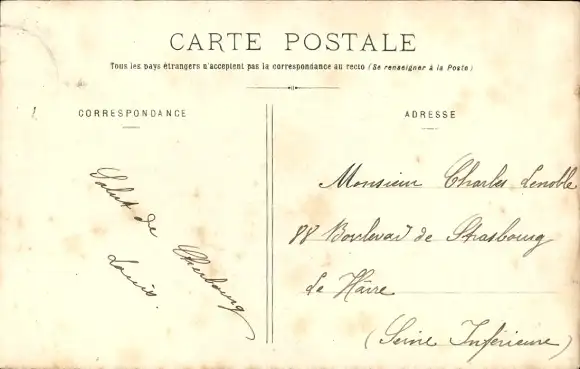 CARTE POSTALE
Tous les pays étrangers n'acceptent pas la correspondance au recto (Se renseigner à la Poste)
CORRESPONDANCE
ADRESSE
Salut de Cherbourg
Louis.
Monsieur Charles Lenoble
88 Boulevard de Strasbourg
Le Hâvre
(Seine Inférieure)